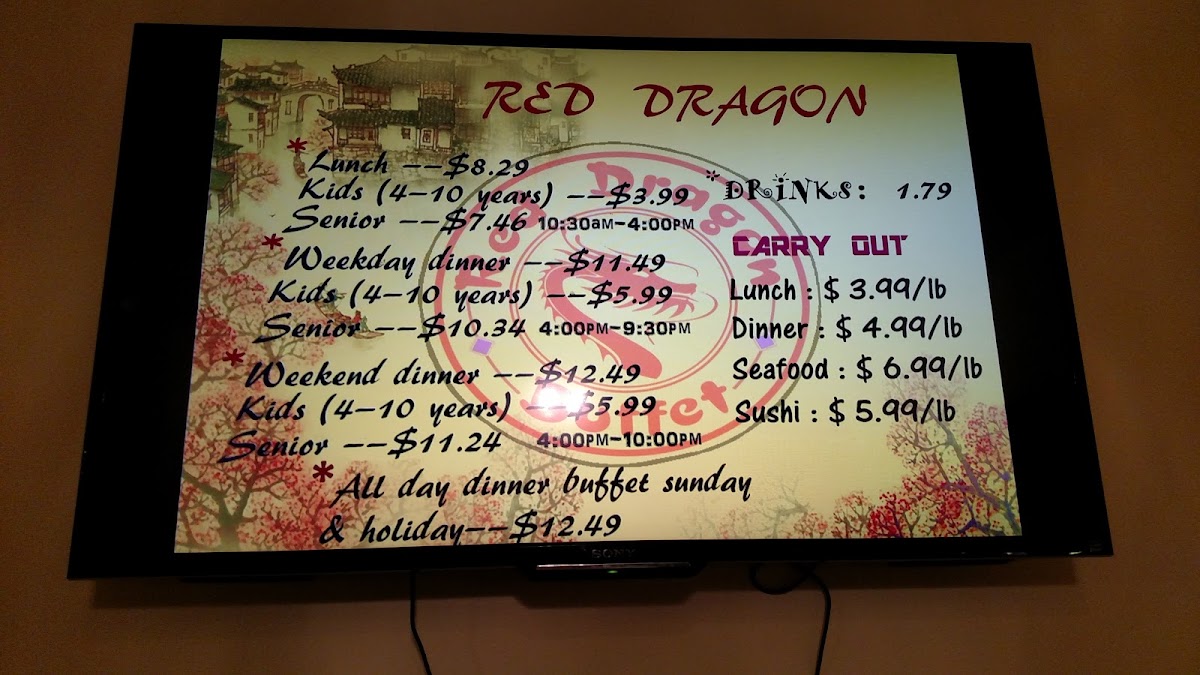 RED DRAGON
* Lunch --$8.29
Kids (4-10 years) --$3.99
Senior --$7.46 10:30am-4:00PM
* Weekday dinner --$11.49
Kids (4-10 years) --$5.99
Senior --$10.34 4:00PM-9:30PM
* Weekend dinner --$12.49
Kids (4-10 years) --$5.99
Senior --$11.24 4:00PM-10:00PM
* All day dinner buffet sunday
& holiday--$12.49
*DRiNKS: 1.79
CARRY OUT
Lunch : $ 3.99/lb
Dinner : $ 4.99/lb
Seafood : $ 6.99/lb
Sushi : $ 5.99/lb
Red Dragon
Buffet
SONY